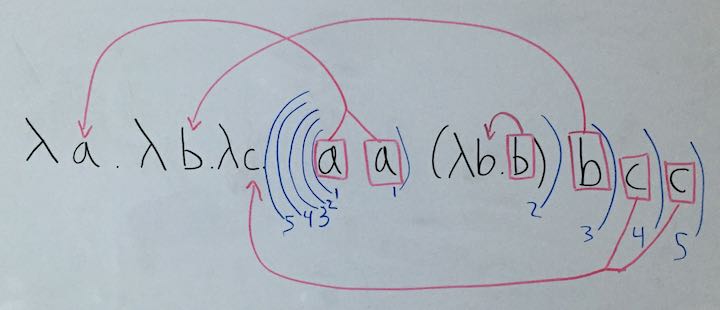 λa.λb.λc.(((((a a) (λb.b)) b) c) c)
5 4 3 2 1 1 2 3 4 5